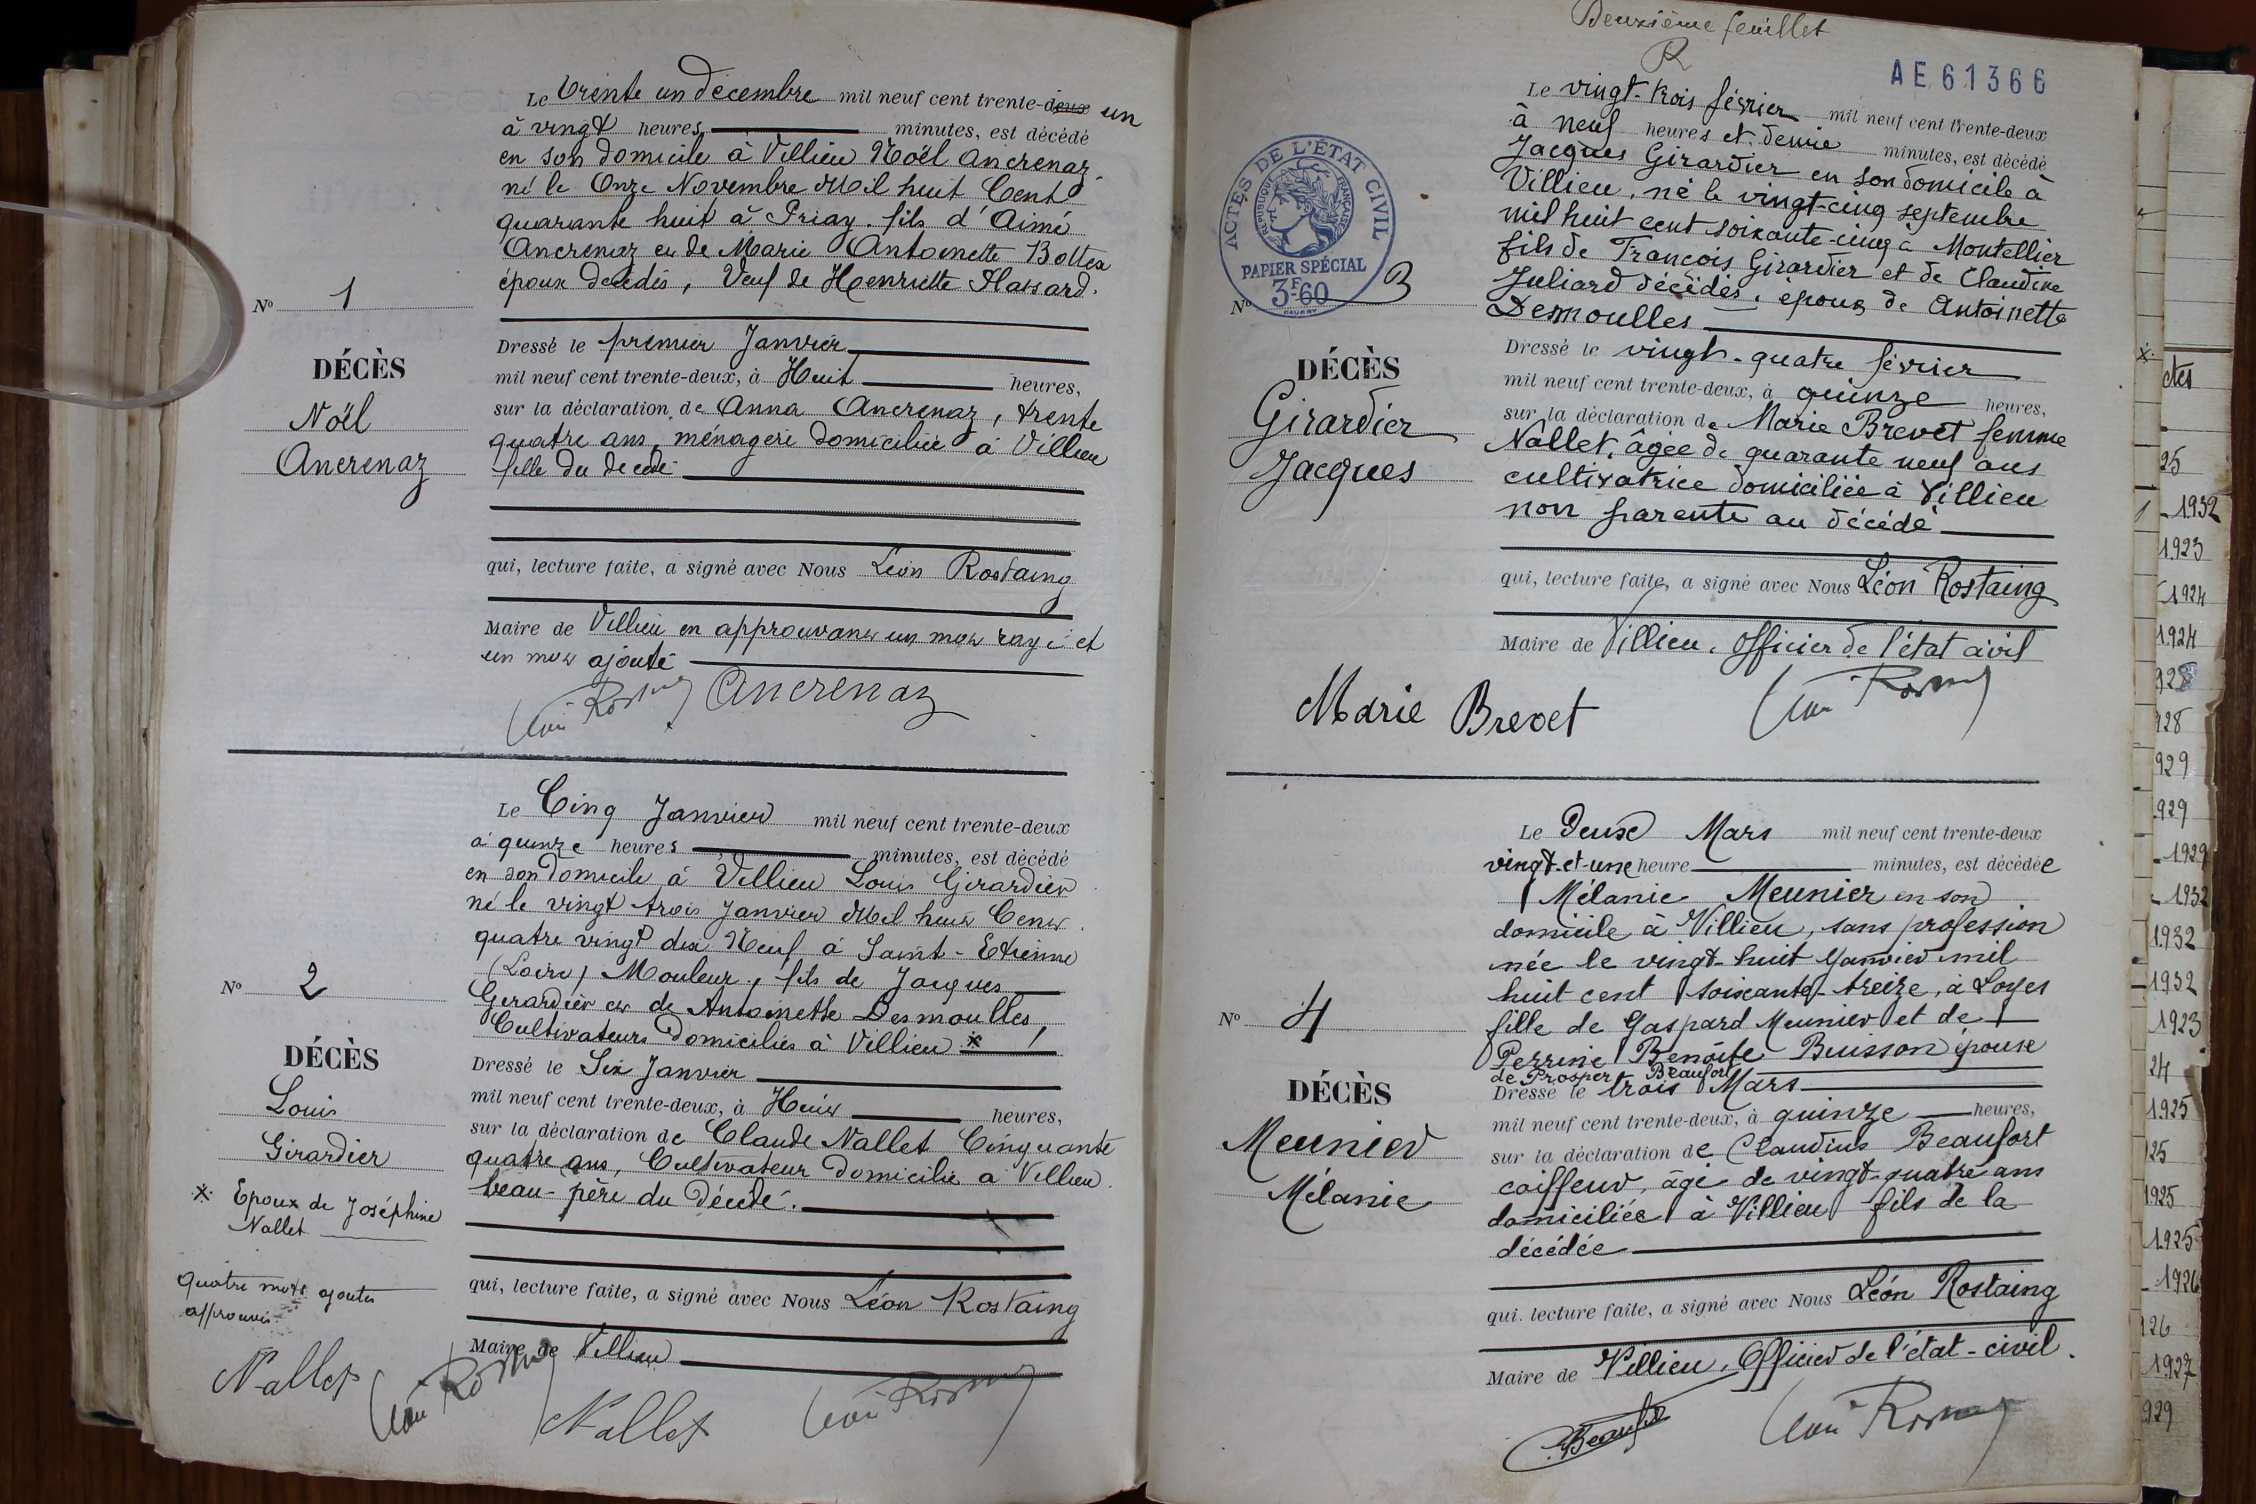 Le trente un décembre mil neuf cent trente-deux un
à vingt heures minutes, est décédé
en son domicile à Villieu Noël Ancrenaz
né le Onze Novembre Mil huit Cent
quarante huit à Priay. fils d'Aimé
Ancrenaz et de Marie Antoinette Bottex
époux décédés, Veuf de Henriette Hassard.
N° 1
DÉCÈS
Noël
Ancrenaz
Dressé le premier Janvier
mil neuf cent trente-deux, à Huit heures,
sur la déclaration de Anna Ancrenaz, trente
quatre ans, ménagère domiciliée à Villieu
fille du décédé
qui, lecture faite, a signé avec Nous Léon Rostaing
Maire de Villieu en approuvant un mot rayé et
un mot ajouté
Ancrenaz
Le Cinq Janvier mil neuf cent trente-deux
à quinze heures minutes, est décédé
en son domicile à Villieu Louis Girardier
né le vingt trois Janvier Mil huit Cent
quatre vingt dix Neuf à Saint-Etienne
(Loire) Mouleur, fils de Jacques
Girardier et de Antoinette Desmoulles
Cultivateurs domiciliés à Villieu *
N° 2
DÉCÈS
Louis
Girardier
* Epoux de Joséphine
Nallet
quatre mots ajoutés
approuvés
Dressé le Six Janvier
mil neuf cent trente-deux, à Huit heures,
sur la déclaration de Claude Nallet Cinquante
quatre ans, Cultivateur domicilié à Villieu.
beau-père du Décédé.
qui, lecture faite, a signé avec Nous Léon Rostaing
Maire de Villieu
Nallet
Nallet
Deuxième feuillet
AE 61366
Le vingt-trois février mil neuf cent trente-deux
à neuf heures et demie minutes, est décédé
Jacques Girardier en son domicile à
Villieu, né le vingt-cinq septembre
mil huit cent soixante-cinq à Montellier
fils de François Girardier et de Claudine
Juliard décédés, époux de Antoinette
Desmoulles
ACTES DE L'ÉTAT CIVIL
RÉPUBLIQUE FRANÇAISE
PAPIER SPÉCIAL
3F60
N° 3
DÉCÈS
Girardier
Jacques
Dressé le vingt-quatre février
mil neuf cent trente-deux, à quinze heures,
sur la déclaration de Marie Brevet femme
Nallet, âgée de quarante neuf ans
cultivatrice domiciliée à Villieu
non parente au décédé
qui, lecture faite, a signé avec Nous Léon Rostaing
Maire de Villieu, officier de l'état civil
Marie Brevet
Le Deux Mars mil neuf cent trente-deux
vingt-et-une heure minutes, est décédée
Mélanie Meunier en son
domicile à Villieu, sans profession
née le vingt-huit Janvier mil
huit cent soixante-treize, à Loyes
fille de Gaspard Meunier et de
Perrine Benoîte Buisson épouse
de Prosper Beaufort
N° 4
DÉCÈS
Meunier
Mélanie
Dressé le trois Mars
mil neuf cent trente-deux, à quinze heures,
sur la déclaration de Claudius Beaufort
coiffeur, âgé de vingt-quatre ans
domiciliée à Villieu fils de la
décédée
qui, lecture faite, a signé avec Nous Léon Rostaing
Maire de Villieu, Officier de l'état-civil.
Beaufort
ctes
25
1932
1923
1924
1924
928
928
929
929
1929
1932
1932
1932
1923
24
1925
25
1925
1925
1926
126
1927
929